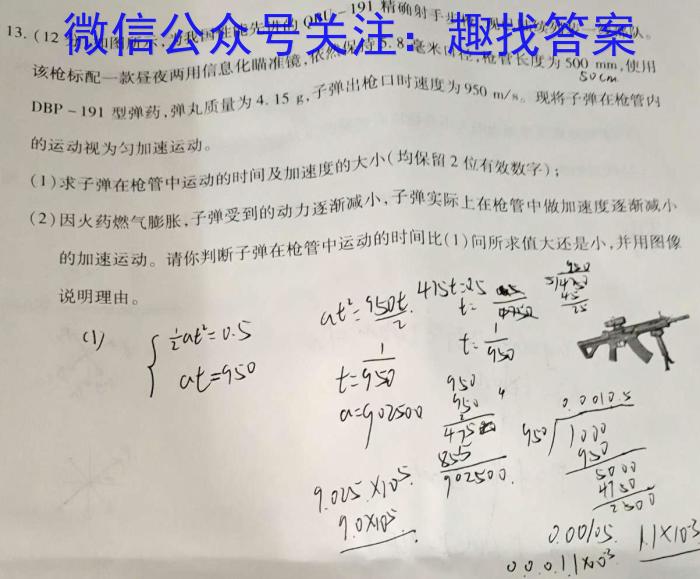 微信公众号关注：趣找答案
13. (12
QBU－191 精确射手步
该枪标配一款昼夜两用信息化瞄准镜，依然保持5.8毫米口径，枪管长度为 500 mm，使用
50cm
DBP－191 型弹药，弹丸质量为 4.15 g，子弹出枪口时速度为 950 m/s。现将子弹在枪管内
的运动视为匀加速运动。
(1)求子弹在枪管中运动的时间及加速度的大小(均保留 2 位有效数字)；
(2)因火药燃气膨胀，子弹受到的动力逐渐减小，子弹实际上在枪管中做加速度逐渐减小
的加速运动。请你判断子弹在枪管中运动的时间比(1)问所求值大还是小，并用图像
说明理由。
(1)
½at²=0.5
at=950
at²=950t/2
t=1/950
a=902500
9.025×10⁵
9.0×10⁵
475t=0.5
t=
4750
t=1/950
950
950
475
855
902500
950
5/4750
45
25
0.00105
950/1000
950
5000
4750
2500
0.00105
1.1×10⁻³